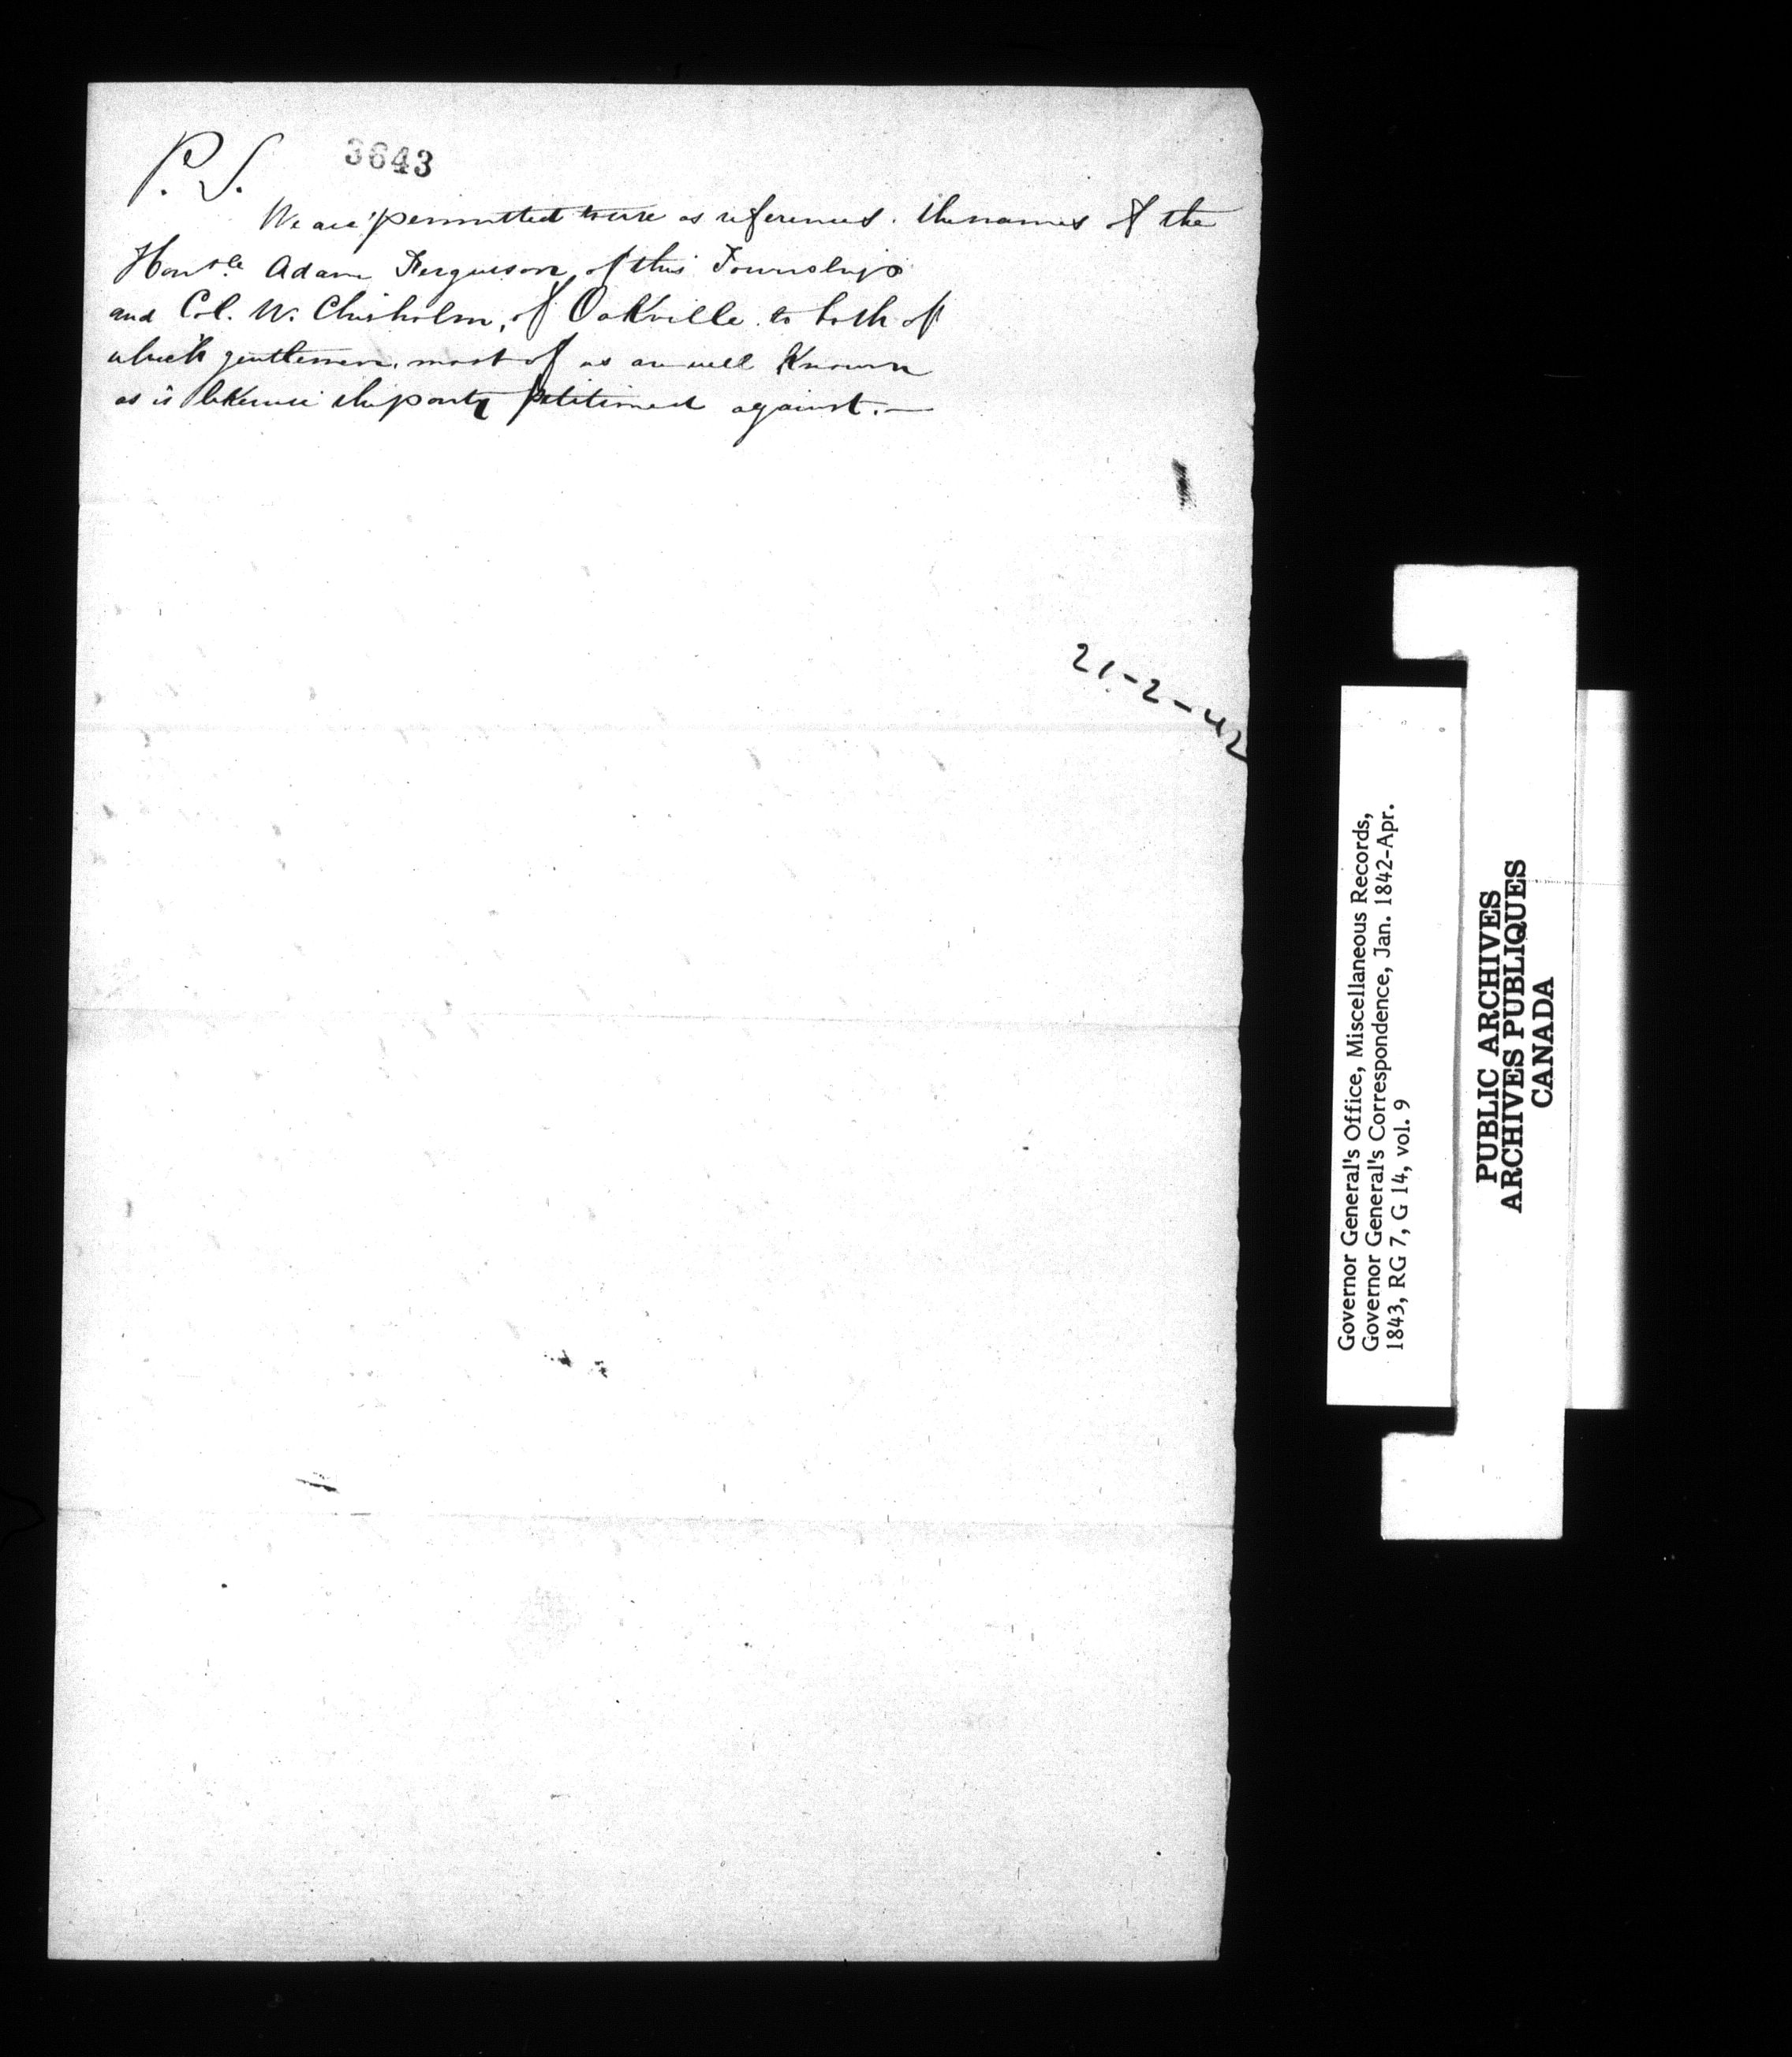 P.S. 3643
We are permitted to use as references. the names of the
Honble Adam Ferguson, of this Township
and Col. W. Chisholm, of Oakville to both of
which gentlemen, most of us are well Known
as is likewise the party petitioned against.—
21-2-42
Governor General's Office, Miscellaneous Records,
Governor General's Correspondence, Jan. 1842-Apr.
1843, RG 7, G 14, vol. 9
PUBLIC ARCHIVES
ARCHIVES PUBLIQUES
CANADA